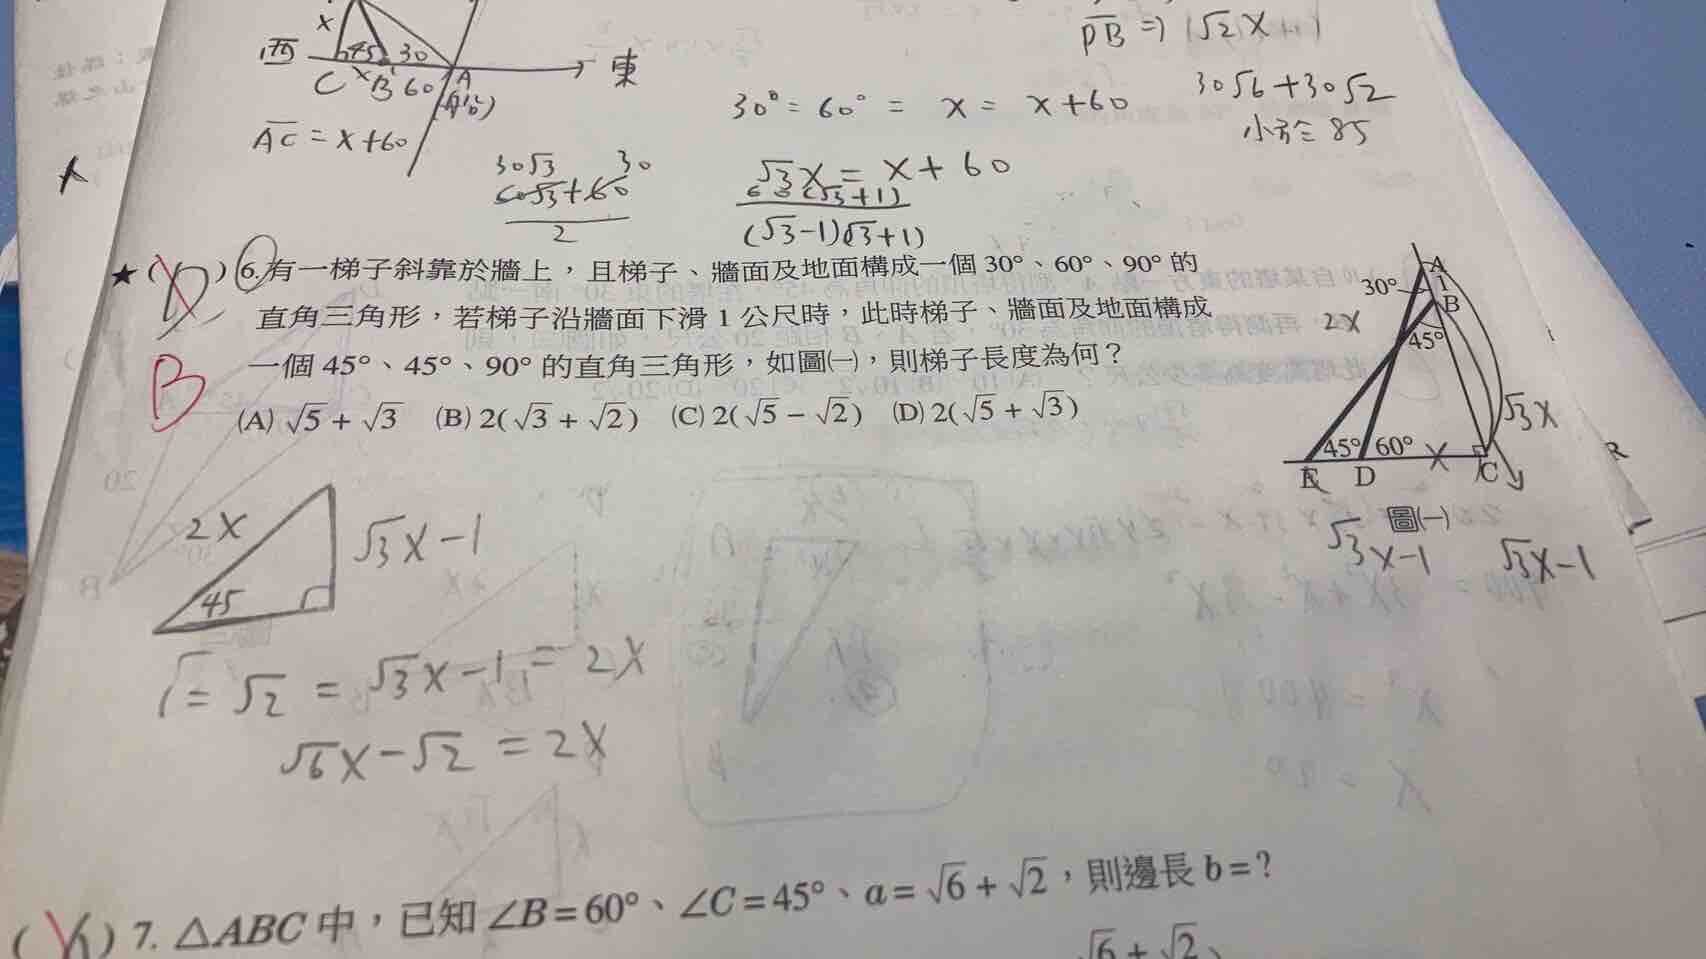 PB => (√2)X
x
西 45 30 東
C x B 60 A
30√6+30√2
30°=60°= x = x+60
小於≒85
AC = X+60
30√3 30
60√3+60
2
√3X = X+60
60(√3+1)
(√3-1)(√3+1)
★( D )6.有一梯子斜靠於牆上，且梯子、牆面及地面構成一個 30°、60°、90° 的
直角三角形，若梯子沿牆面下滑 1 公尺時，此時梯子、牆面及地面構成
一個 45°、45°、90° 的直角三角形，如圖㈠，則梯子長度為何？
B
(A) √5 + √3 (B) 2(√3 + √2) (C) 2(√5 − √2) (D) 2(√5 + √3)
A
30° 1
B
2X
45°
√3X
45° 60° X
E D C
圖㈠
√3X-1 √3X-1
2X √3X-1
45
1=√2 = √3X-1 = 2X
√6X-√2 = 2X
( ) 7. △ABC 中，已知 ∠B=60°、∠C=45°、a=√6+√2，則邊長 b=?
√6+√2